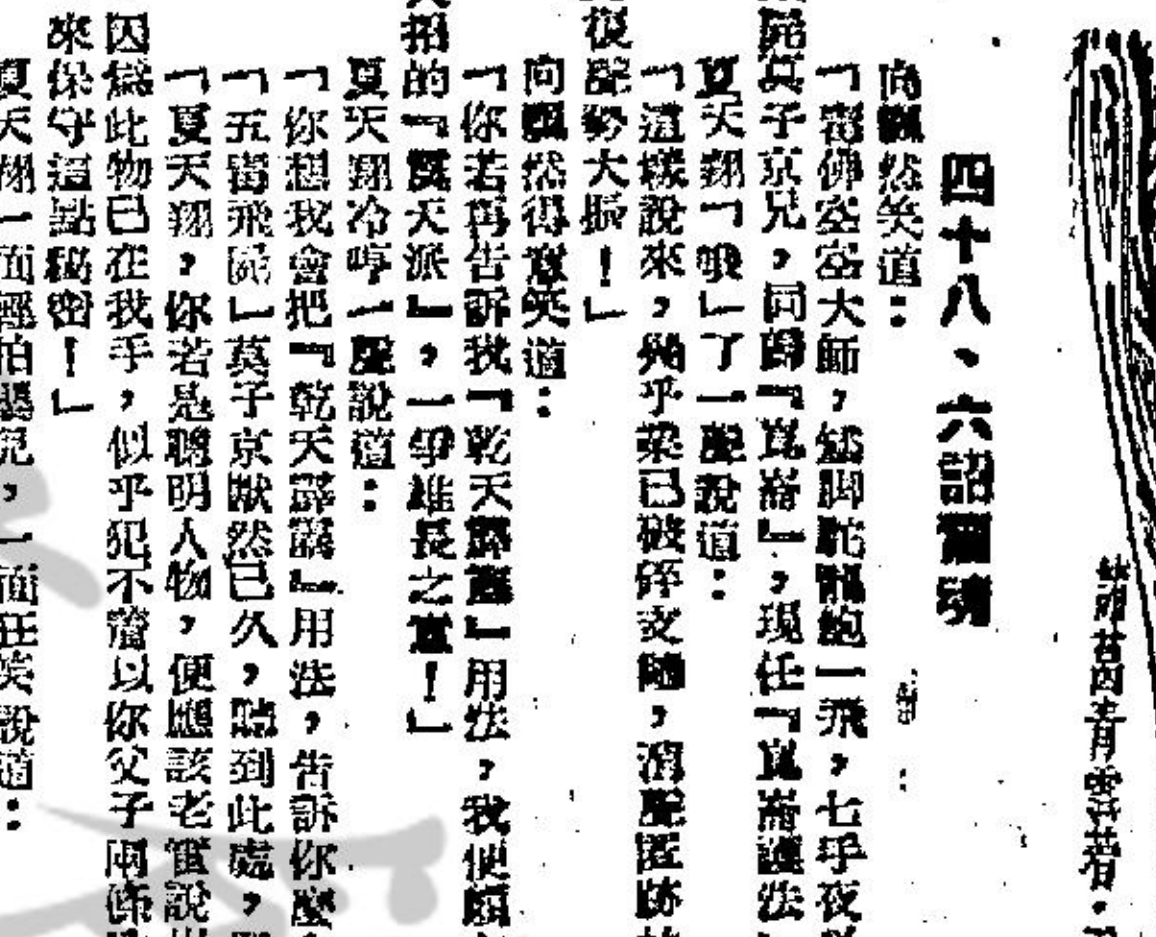 四十八、六詔
向飄然笑道：
「密佛空空大師，矮脚駝龍鮑一飛，七手夜
子京兄，同歸『崑崙』，現任『崑崙護法
夏天翔「哦」了一聲說道：
「這樣說來，幾乎業已破碎支離，消聲匿跡
復聲勢大振！」
向飄然得意笑道：
「你若再告訴我『乾天霹靂』用法，我便願
招的『震天派』，一爭雄長之意！」
夏天翔冷哼一聲說道：
「你想我會把『乾天霹靂』用法，告訴你麼
「五毒飛 」莫子京默然已久，聽到此處，
「夏天翔，你若是聰明人物，便應該老實說
因爲此物已在我手，似乎犯不著以你父子兩條
來保守這點秘密！」
夏天翔一面輕拍 兒，一面狂笑說道：